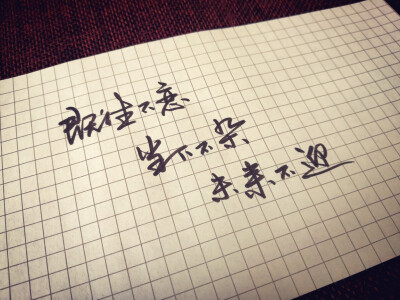 既往不恋
当下不杂
未来不迎